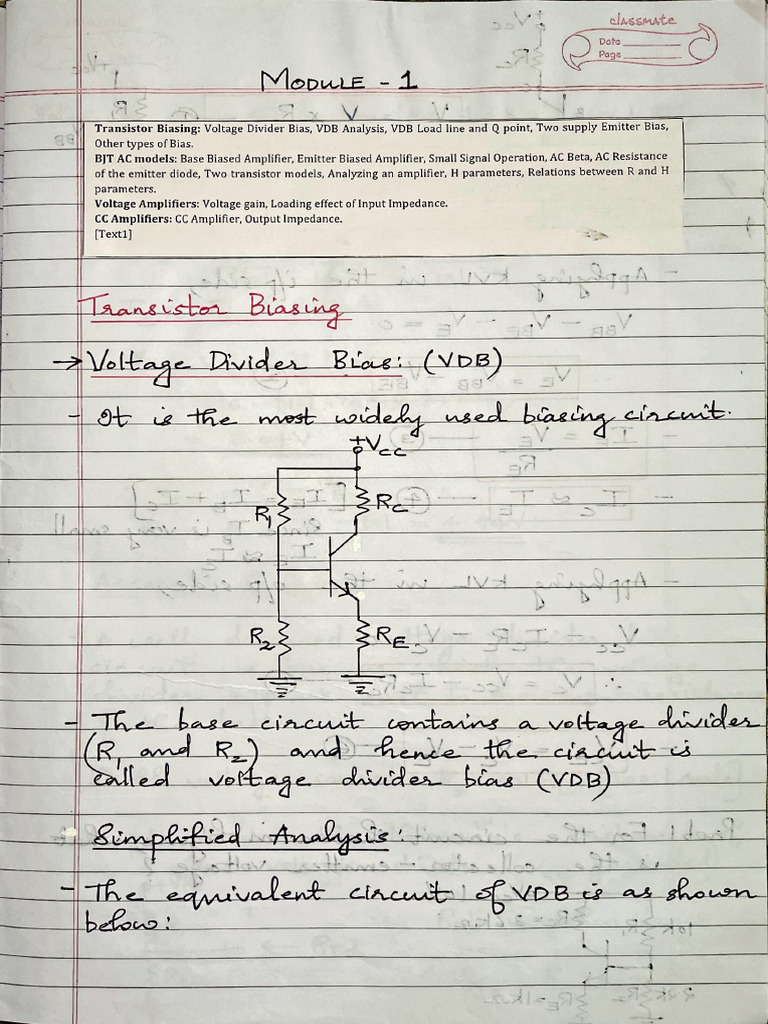 classmate
Date
Page
MODULE - 1
Transistor Biasing: Voltage Divider Bias, VDB Analysis, VDB Load line and Q point, Two supply Emitter Bias,
Other types of Bias.
BJT AC models: Base Biased Amplifier, Emitter Biased Amplifier, Small Signal Operation, AC Beta, AC Resistance
of the emitter diode, Two transistor models, Analyzing an amplifier, H parameters, Relations between R and H
parameters.
Voltage Amplifiers: Voltage gain, Loading effect of Input Impedance.
CC Amplifiers: CC Amplifier, Output Impedance.
[Text1]
Transistor Biasing
→ Voltage Divider Bias: (VDB)
- It is the most widely used biasing circuit.
+VCC
R1 RC
R2 RE
- The base circuit contains a voltage divider
(R1 and R2) and hence the circuit is
called voltage divider bias (VDB)
Simplified Analysis:
- The equivalent circuit of VDB is as shown
below: